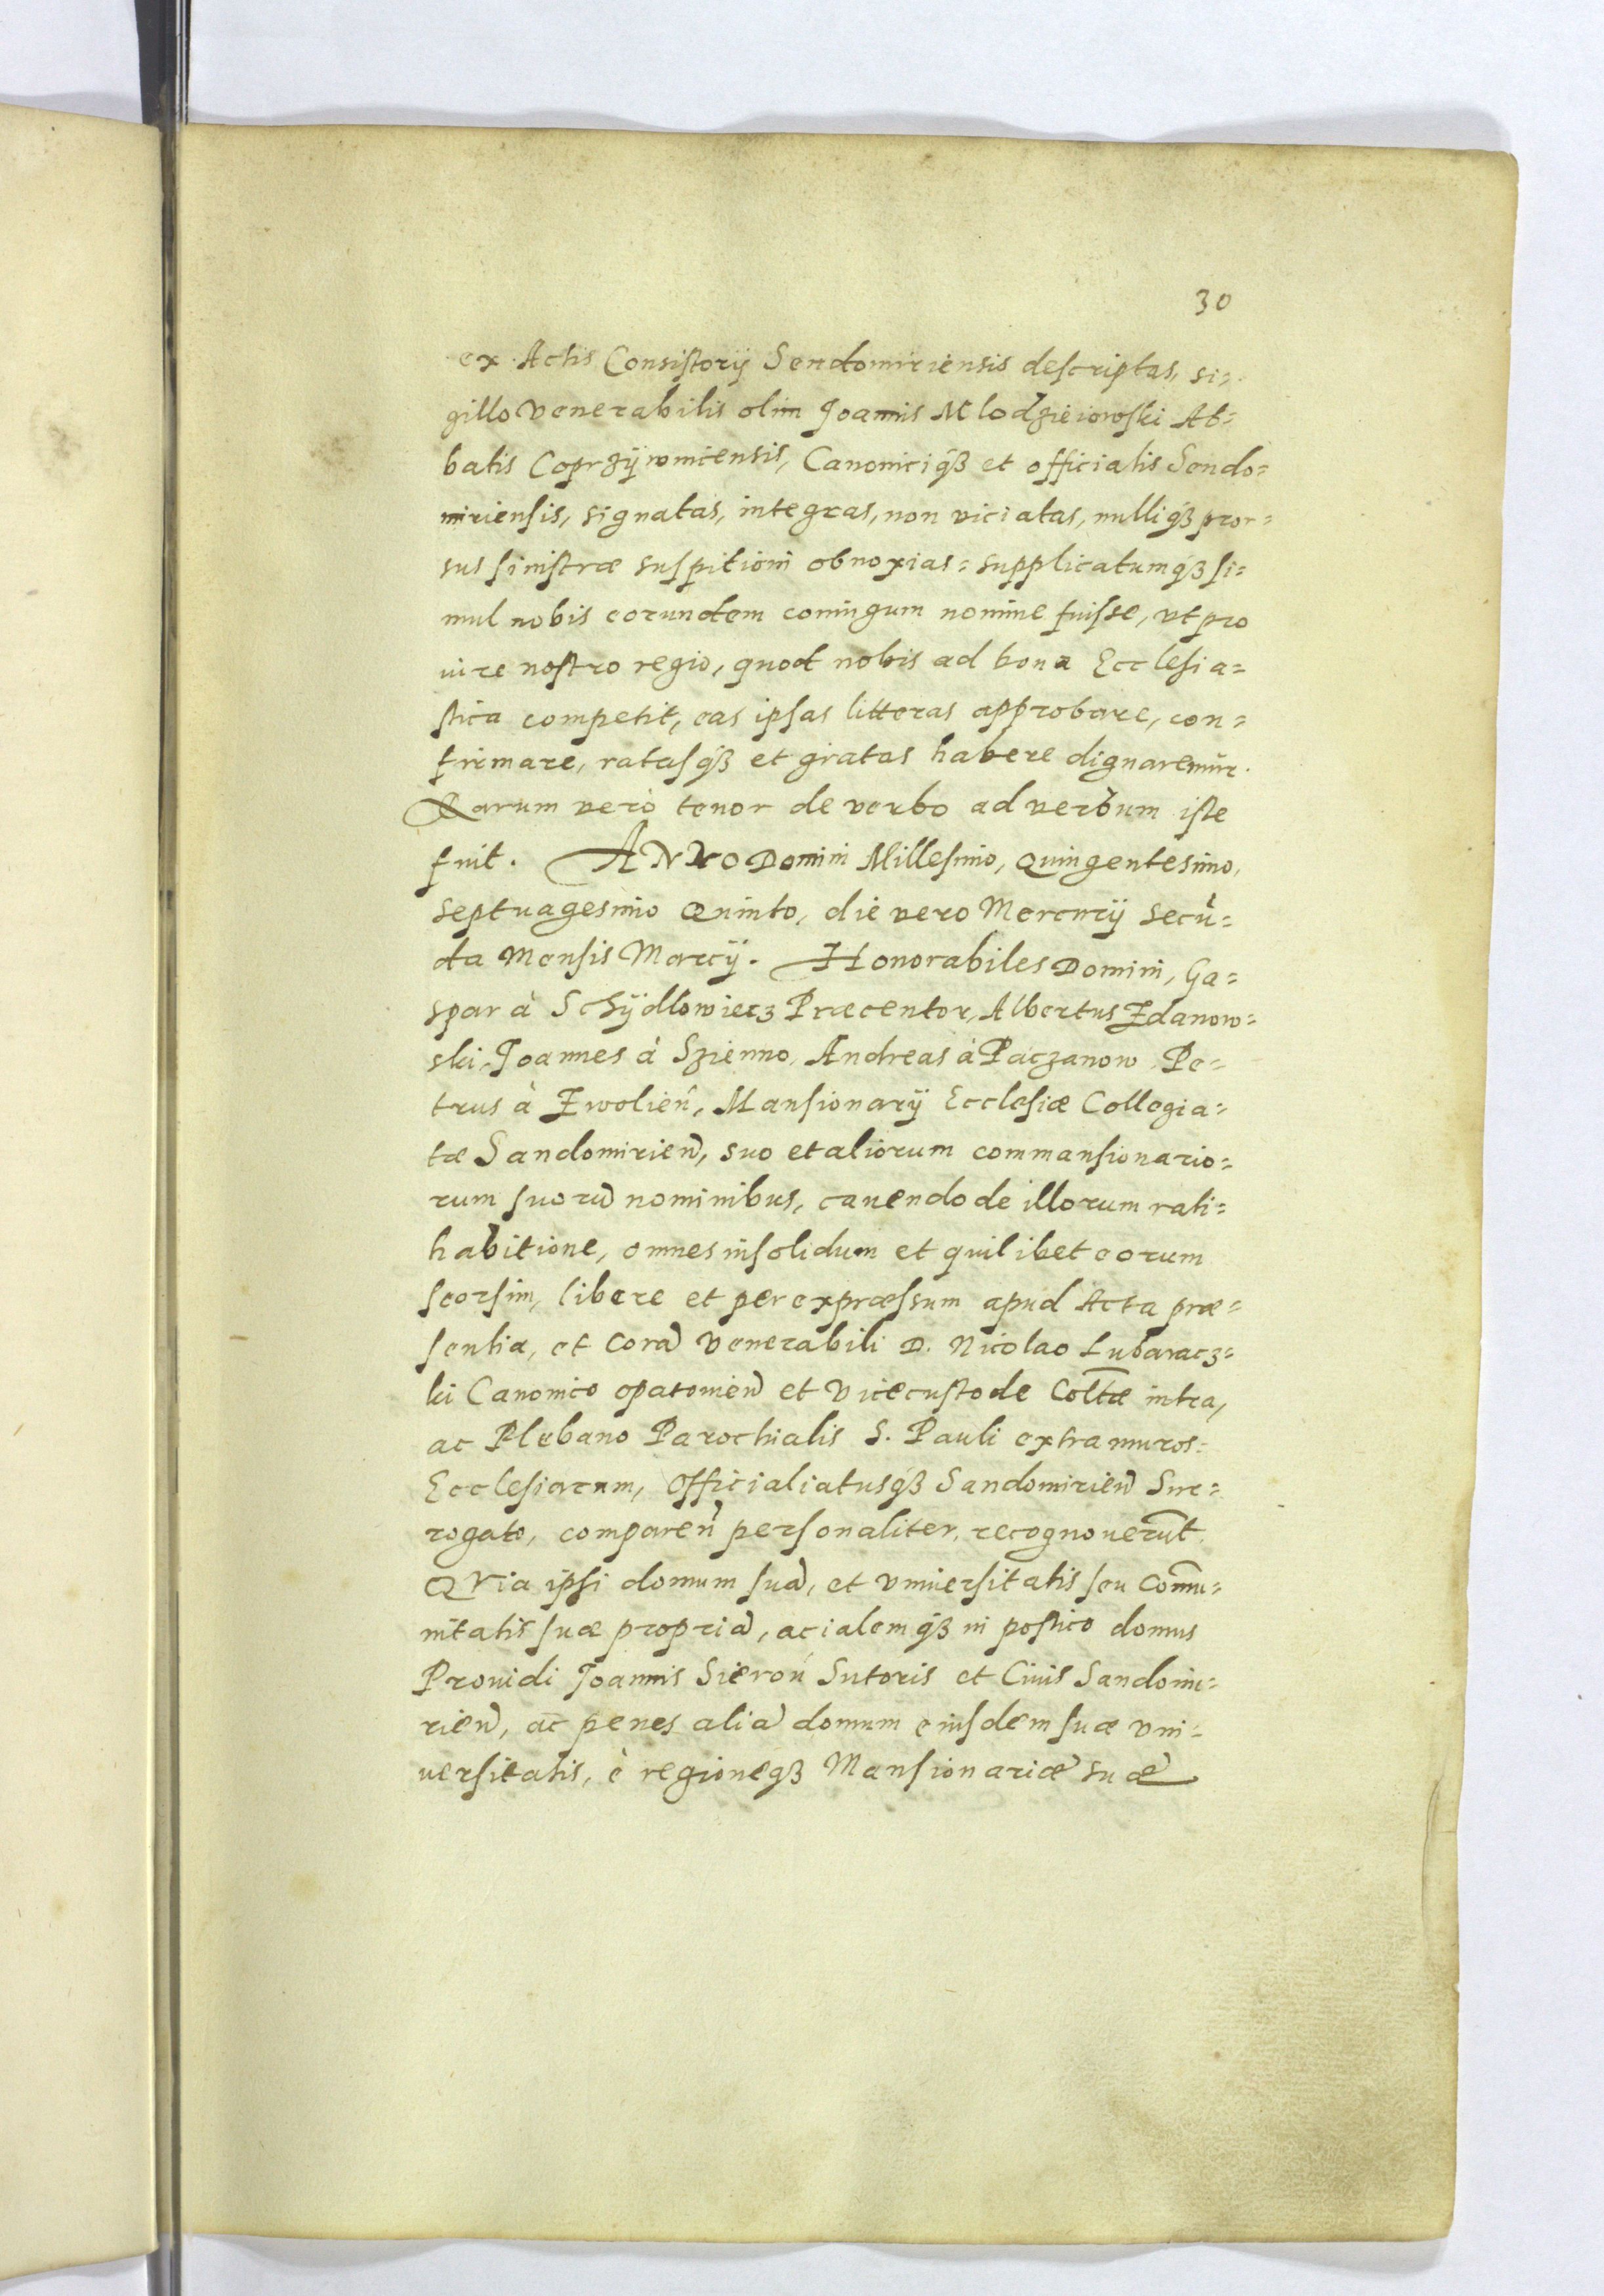 30
ex Actis Consistorij Sendomiriensis descriptas, si=
gillo Venerabilis olim Joannis Mlodzieiowski Ab=
batis Coprzÿwnicensis, Canoniciq́ꝫ et officialis Sendo=
miriensis, signatas, integras, non viciatas, nulliq́ꝫ pror=
sus sinistræ suspitioni obnoxias = supplicatumq́ꝫ si=
mul nobis eorundem coniugum nomine fuisse, vt pro
iure nostro regio, quod nobis ad bona Ecclesia=
stica competit, eas ipsas litteras approbare, con=
firmare, ratasq́ꝫ et gratas habere dignaremur.
Quarum verò tenor de verbo ad verbum iste
fuit. ANNO Domini Millesimo, Quingentesimo,
Septuagesimo Quinto, die vero Mercurij Secũ=
da Mensis Marcij. Honorabiles Domini, Ga=
spar à Schÿdlowiecz Præcentor, Albertus Zdanow=
ski, Joannes à Szienno, Andreas à Paczanow, Pe=
trus à Zwolień, Mansionarij Ecclesiæ Collegia=
tæ Sandomirien̄, suo et aliorum commansionario=
rum suorū nominibus, cauendo de illorum rati=
habitione, omnes insolidum et quilibet eorum
seorsim, libere et per expræssum apud Acta præ=
sentia, et Corā Venerabili D. Nicolao Lubaracz=
ki Canonico opatouien̄ et Vicecustode Coltǣ intra,
ac Plebano Parochialis S. Pauli extra muros =
Ecclesiarum, Officialiatusq́ꝫ Sandomirien̄ Sur=
rogato, comparen̄ personaliter, recognouerūt.
QVia ipsi domum suā, et Vniuersitatis seu Com̄u=
nitatis suæ propriā, acialemq́ꝫ in postico domus
Prouidi Joannis Sieroń Sutoris et Ciuis Sandomi=
rien̄, ac penes aliā domum eiusdem suæ Vni=
uersitatis, è regioneq́ꝫ Mansionariæ suæ